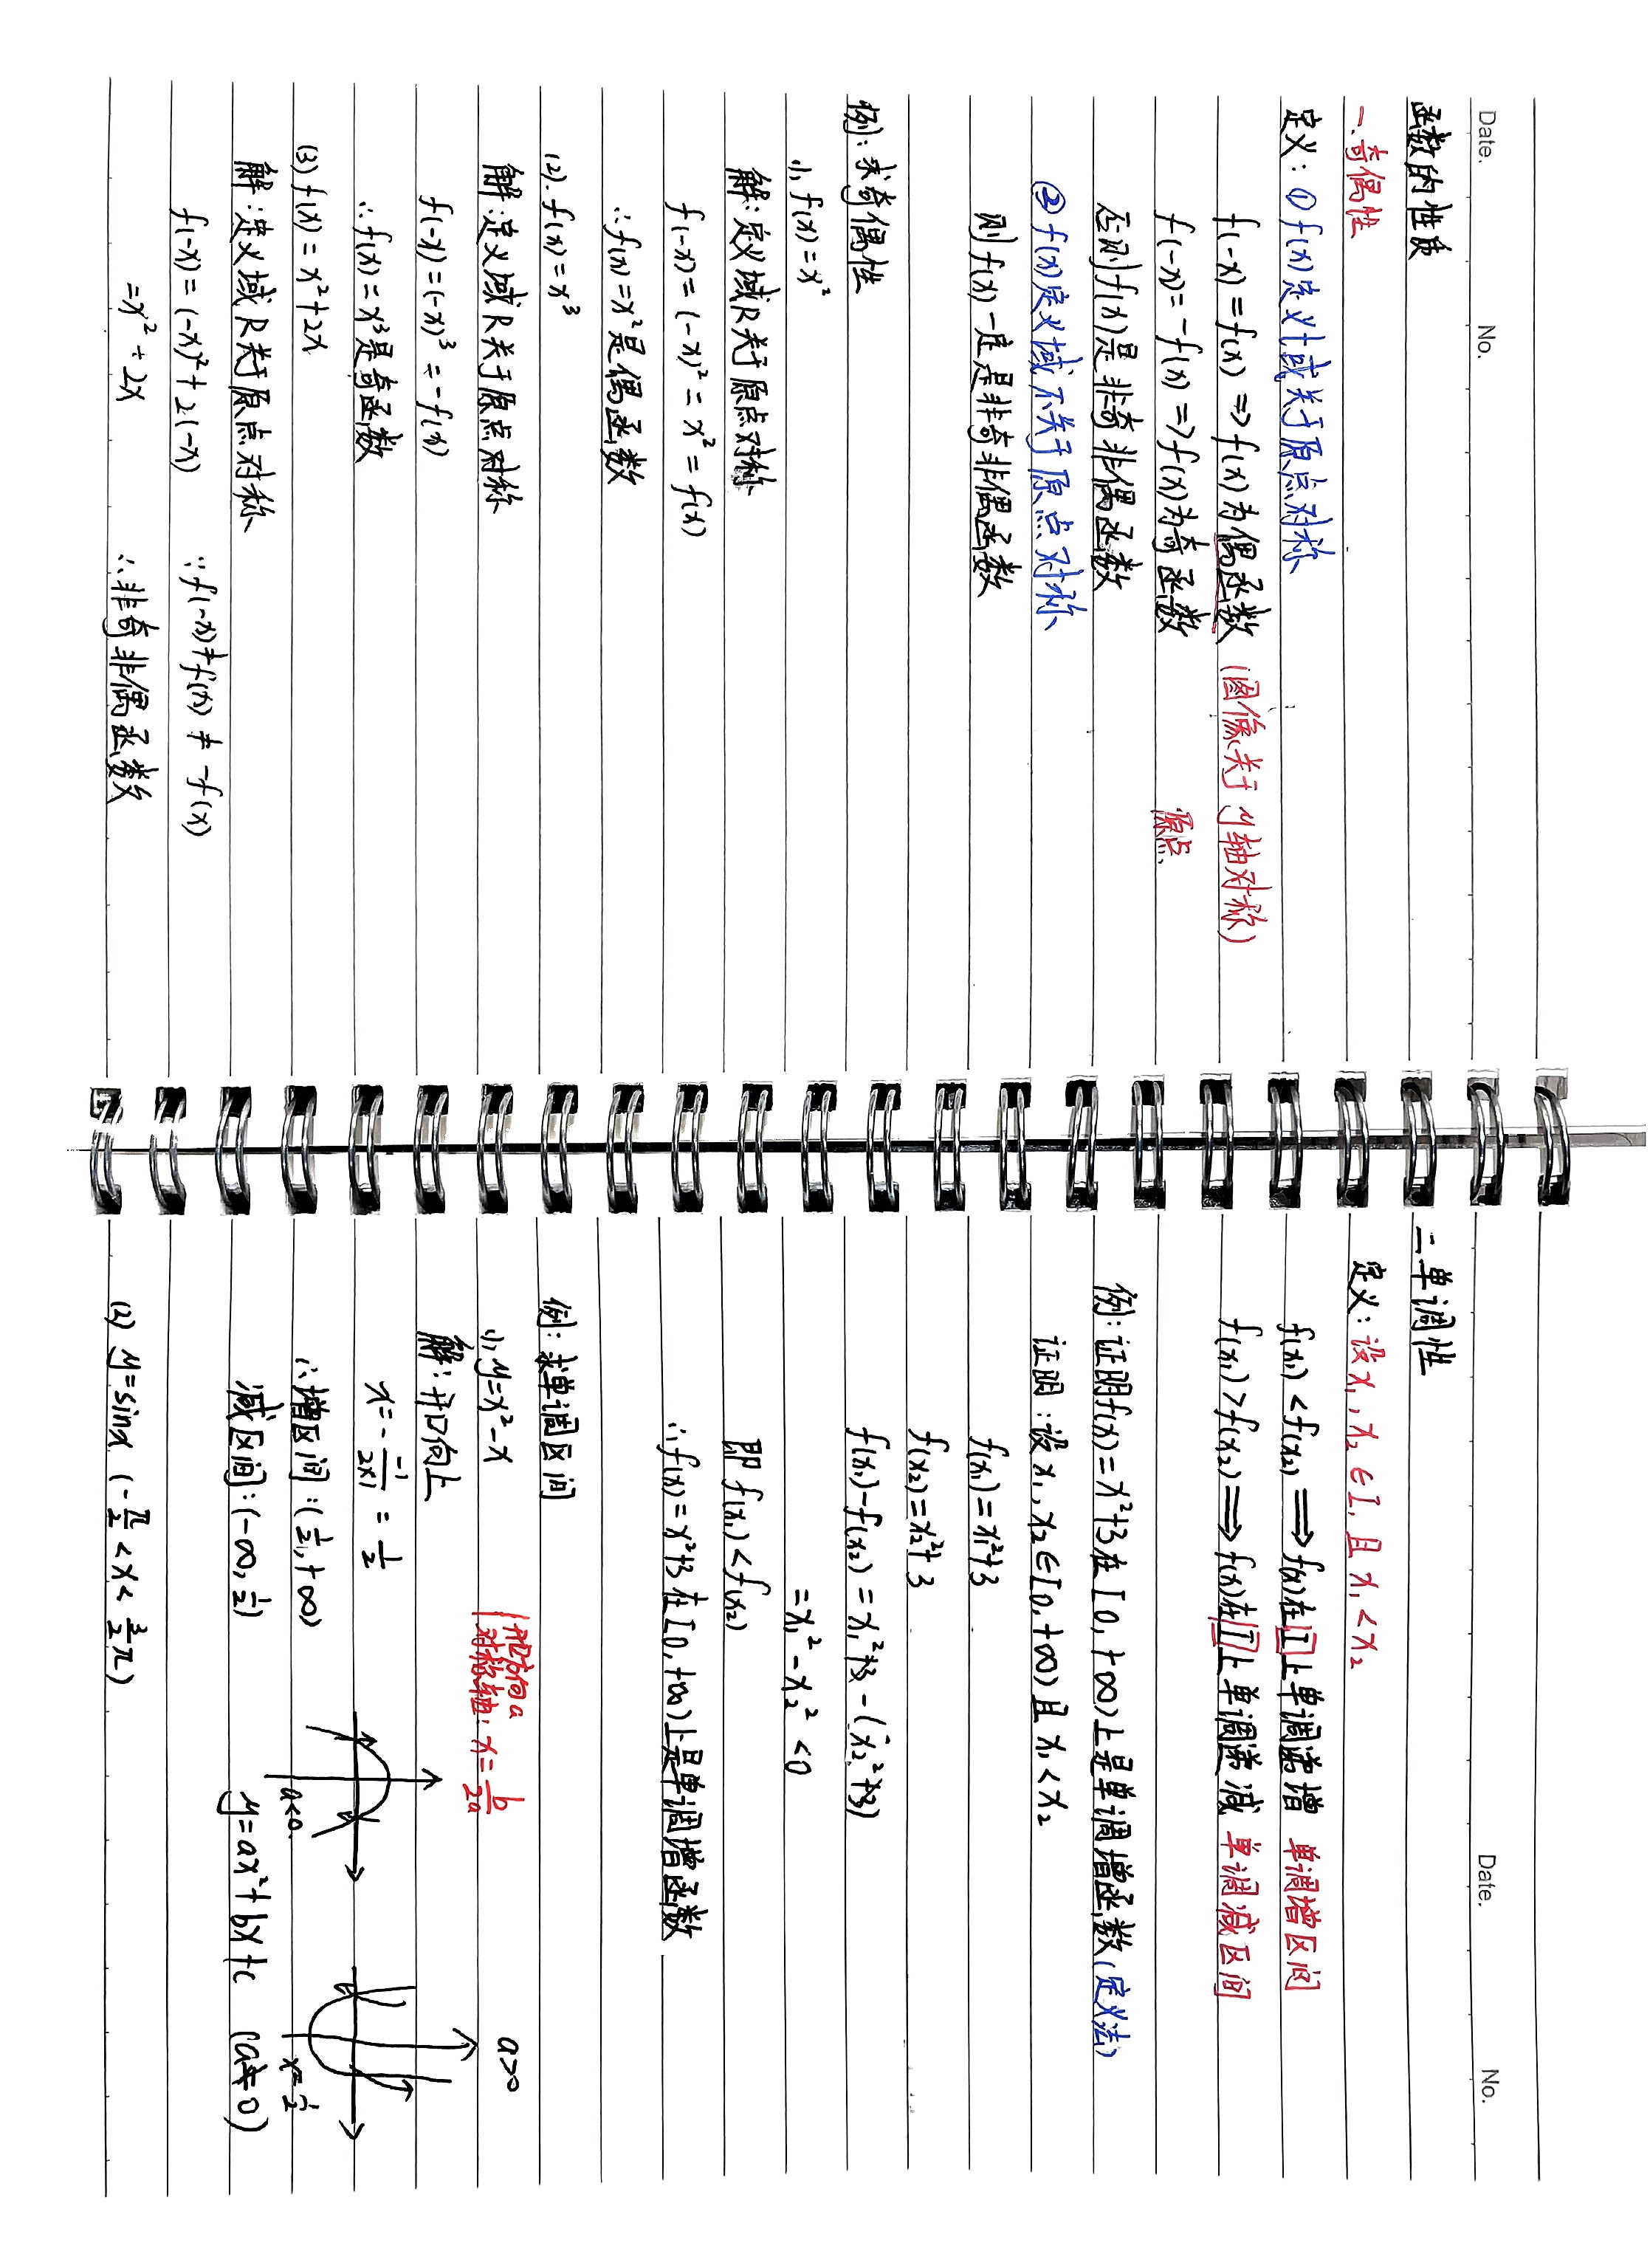 Date. No.
函数的性质
一.奇偶性
定义：① f(x)定义域关于原点对称
f(-x)=f(x) ⇒ f(x)为偶函数 (图像关于y轴对称)
f(-x)=-f(x) ⇒ f(x)为奇函数 原点
否则f(x)是非奇非偶函数
② f(x)定义域不关于原点对称
则f(x)一定是非奇非偶函数
例：求奇偶性
(1) f(x)=x²
解：定义域R关于原点对称
f(-x)=(-x)²=x²=f(x)
∴f(x)=x²是偶函数
(2). f(x)=x³
解：定义域R关于原点对称
f(-x)=(-x)³=-f(x)
∴f(x)=x³是奇函数
(3) f(x)=x²+2x
解：定义域R关于原点对称
f(-x)=(-x)²+2(-x) ∵f(-x)≠f(x)≠-f(x)
=x²-2x ∴非奇非偶函数
Date. No.
二.单调性
定义：设x₁,x₂∈I,且x₁<x₂
f(x₁)<f(x₂) ⟹ f(x)在I上单调递增 单调增区间
f(x₁)>f(x₂) ⟹ f(x)在I上单调递减 单调减区间
例：证明f(x)=x²+3在[0,+∞)上是单调增函数(定义法)
证明：设x₁,x₂∈[0,+∞)且x₁<x₂
f(x₁)=x₁²+3
f(x₂)=x₂²+3
f(x₁)-f(x₂)=x₁²+3-(x₂²+3)
=x₁²-x₂²<0
即f(x₁)<f(x₂)
∴f(x)=x²+3在[0,+∞)上是单调增函数
例：求单调区间
(1) y=x²-x
开口方向a
对称轴：x=-b/2a
a>0
解：开口向上
x=-\frac{-1}{2×1}=\frac{1}{2}
∴增区间：(½,+∞)
a<0
x=-½
减区间：(-∞,½)
y=ax²+bx+c (a≠0)
(2) y=sinx (-\frac{π}{2}<x<\frac{3}{2}π)